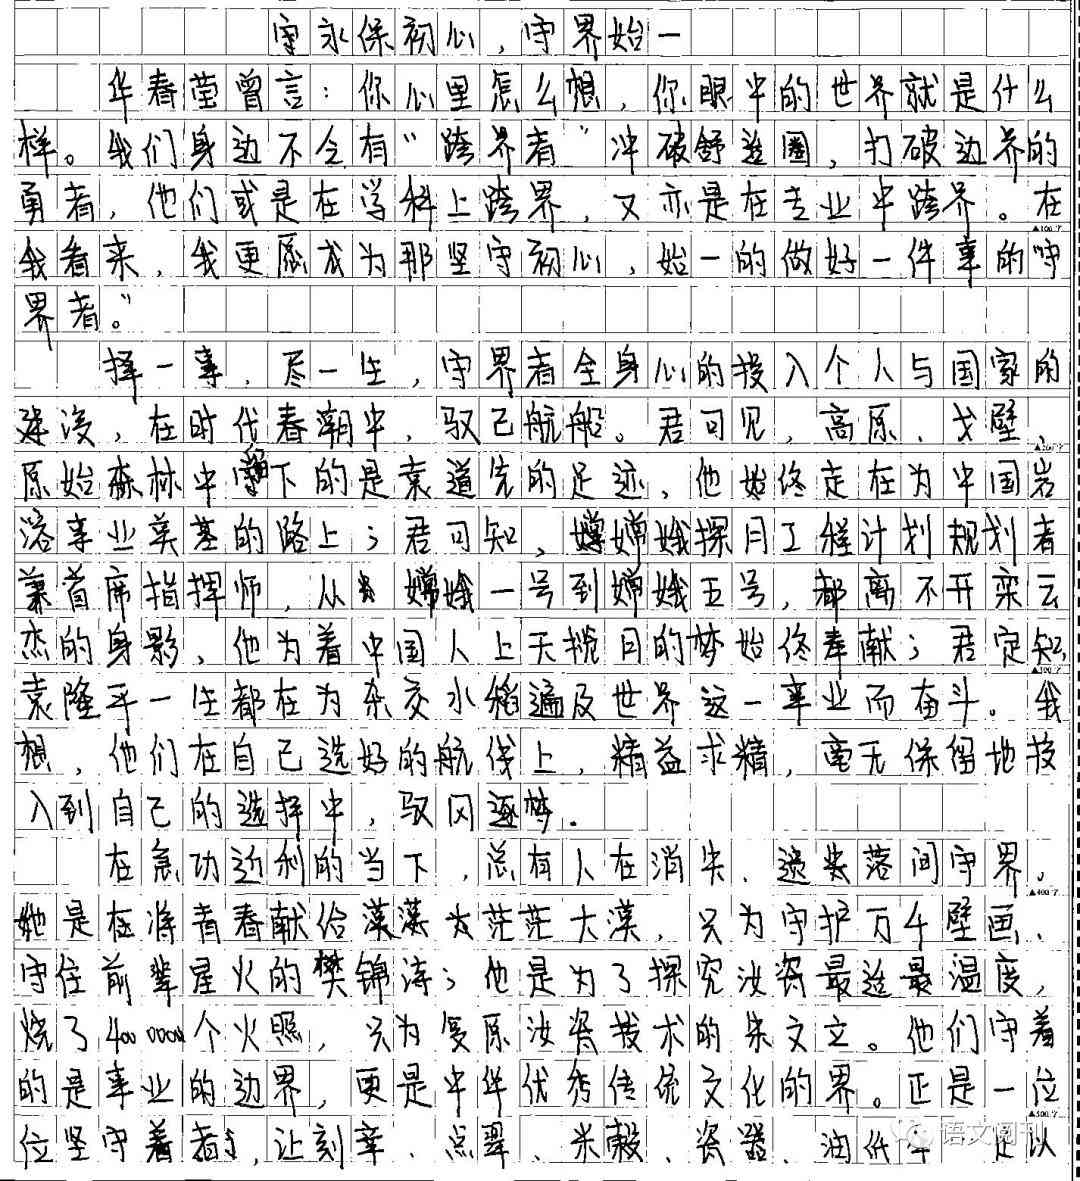 守永保初心，守界始一
华春莹曾言：你心里怎么想，你眼中的世界就是什么
样。我们身边不乏有“跨界者”冲破舒适圈，打破边界的
勇者，他们或是在学科上跨界，又亦是在专业中跨界。在
我看来，我更愿成为那坚守初心，始一的做好一件事的“守
界者。”
择一事，尽一生，守界者全身心的投入个人与国家的
建设，在时代春潮中，驭己航船。君可见，高原、戈壁、
原始森林中留下的是袁道先的足迹，他始终走在为中国岩
溶事业奠基的路上；君可知，嫦娥探月工程计划规划者
兼首席指挥师，从嫦娥一号到嫦娥五号，都离不开栾云
杰的身影，他为着中国人上天揽月的梦始终奉献；君定知，
袁隆平一生都在为杂交水稻遍及世界这一事业而奋斗。我
想，他们在自己选好的航线上，精益求精，毫无保留地投
入到自己的选择中，驭风逐梦。
在急功近利的当下，总有人在消失、遗失落间守界。
她是在将青春献给茫茫大漠，只为守护万千壁画、
守住前辈星火的樊锦涛；他是为了探究汝瓷最适最温度，
烧了400000个火照，只为复原汝瓷技术的朱文立。他们守着
的是事业的边界，更是中华优秀传统文化的界。正是一位
位坚守着者，让刻章、点翠、米雕、瓷器、油纸伞是以
100字
200字
300字
400字
500字
语文阅刊